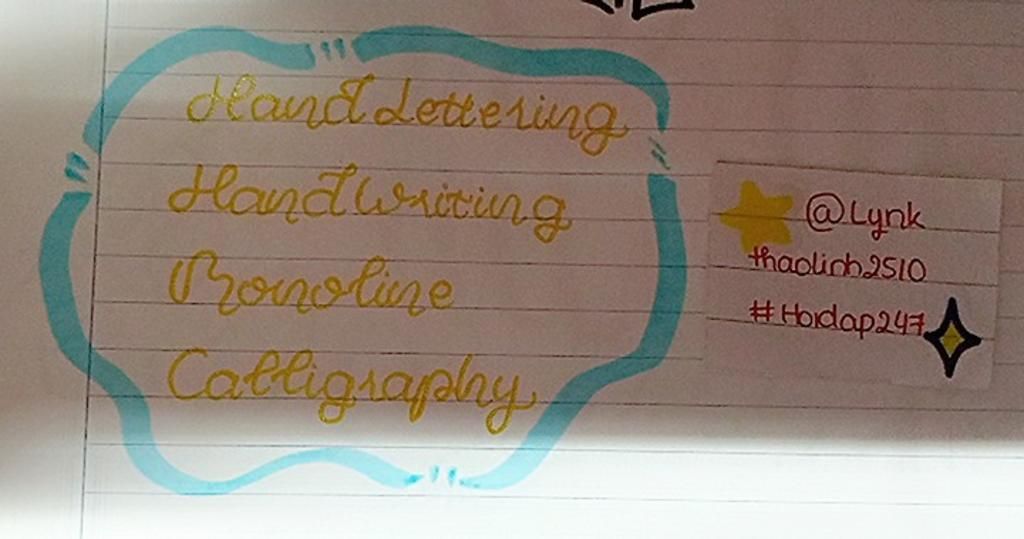 Hand Lettering
Handwriting
Monoline
Calligraphy
@Lynk
thaolinh2510
#Hoidap247